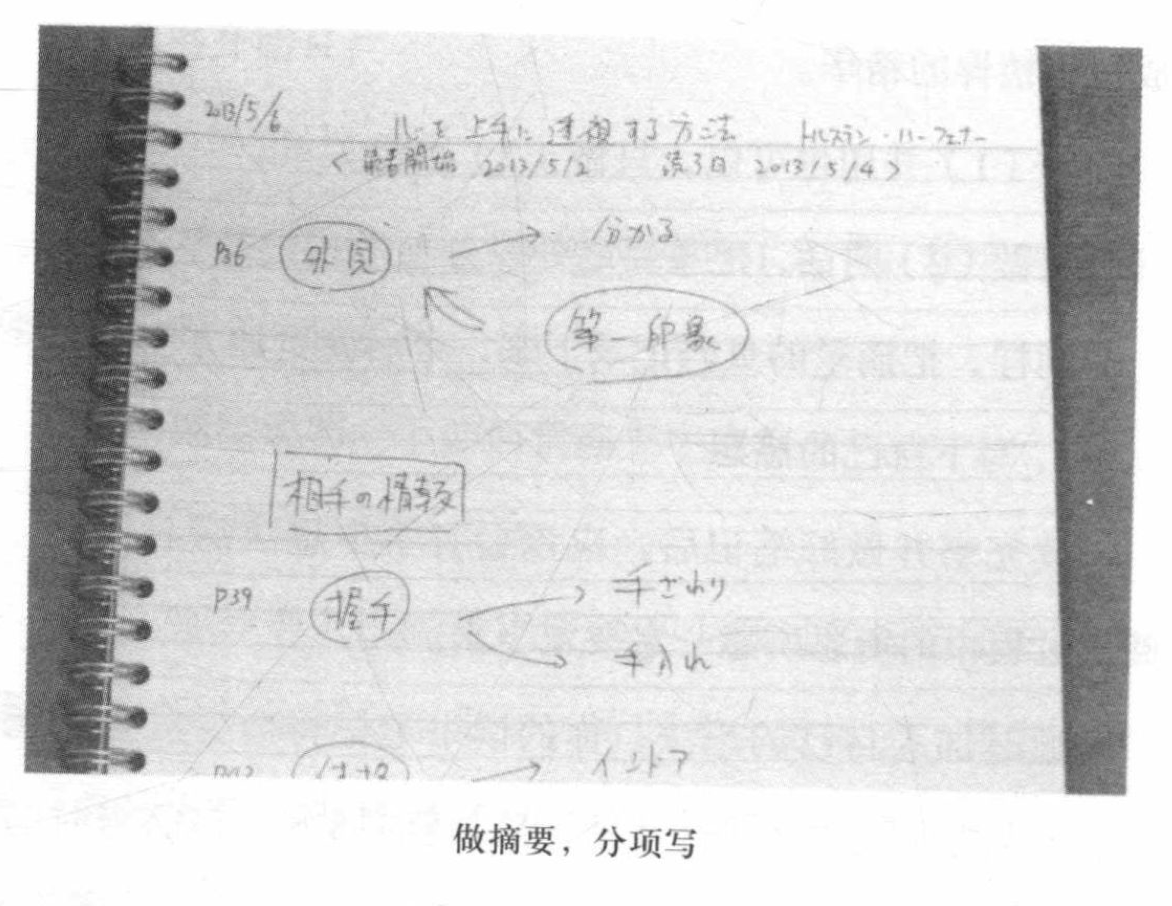 2013/5/6 心を上手に透視する方法 トルステン・ハーフェナー
<読書開始 2013/5/2 読了日 2013/5/4>
P36 外見 → 分かる
第一印象
相手の情報
P39 握手 → 手ざわり
→ 手入れ
→ インドア
做摘要，分项写